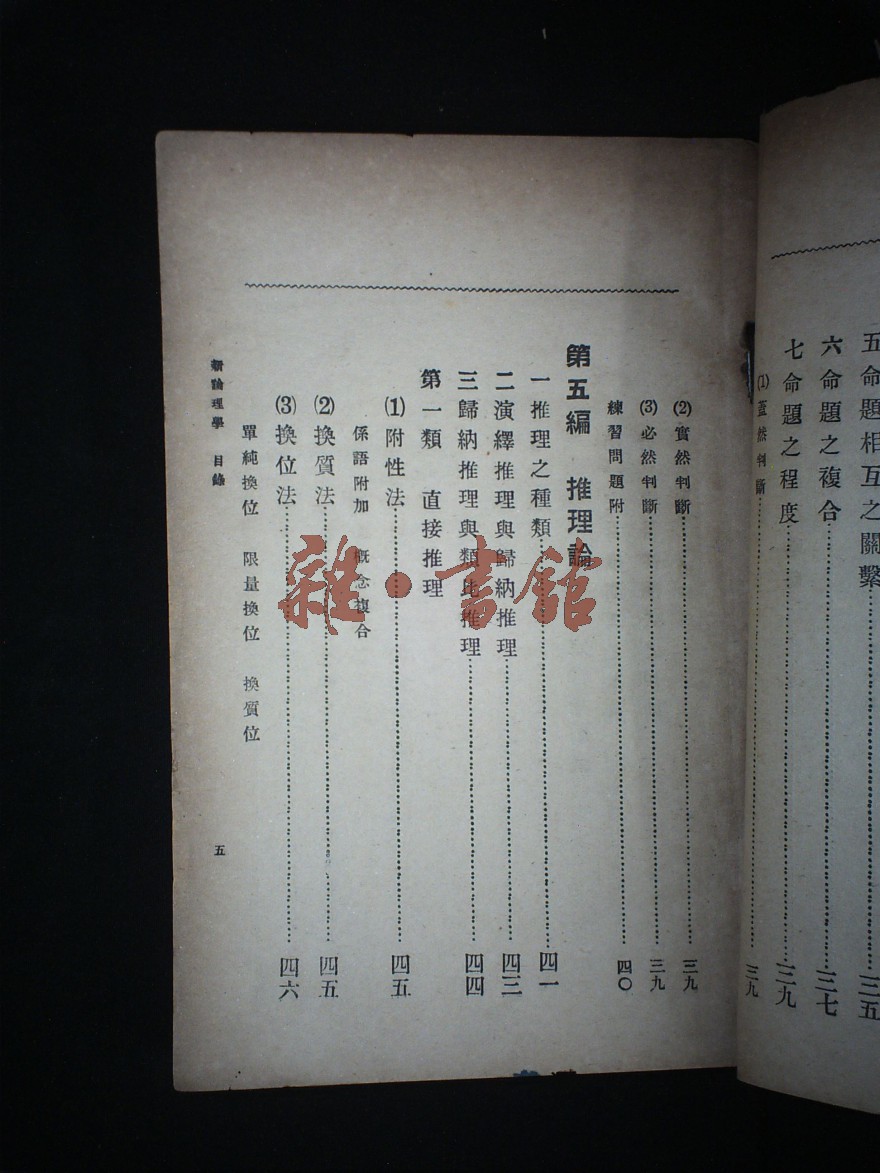 五命題相互之關繫……三五
六命題之複合……三七
七命題之程度……三九
(1)蓋然判斷……三九
(2)實然判斷……三九
(3)必然判斷……三九
練習問題附……四〇
第五編　推理論
一推理之種類……四一
二演繹推理與歸納推理……四三
三歸納推理與類比推理……四四
第一類　直接推理
(1)附性法……四五
係語附加　概念複合
(2)換質法……四五
(3)換位法……四六
單純換位　限量換位　換質位
新論理學　目錄
五
雜·書館